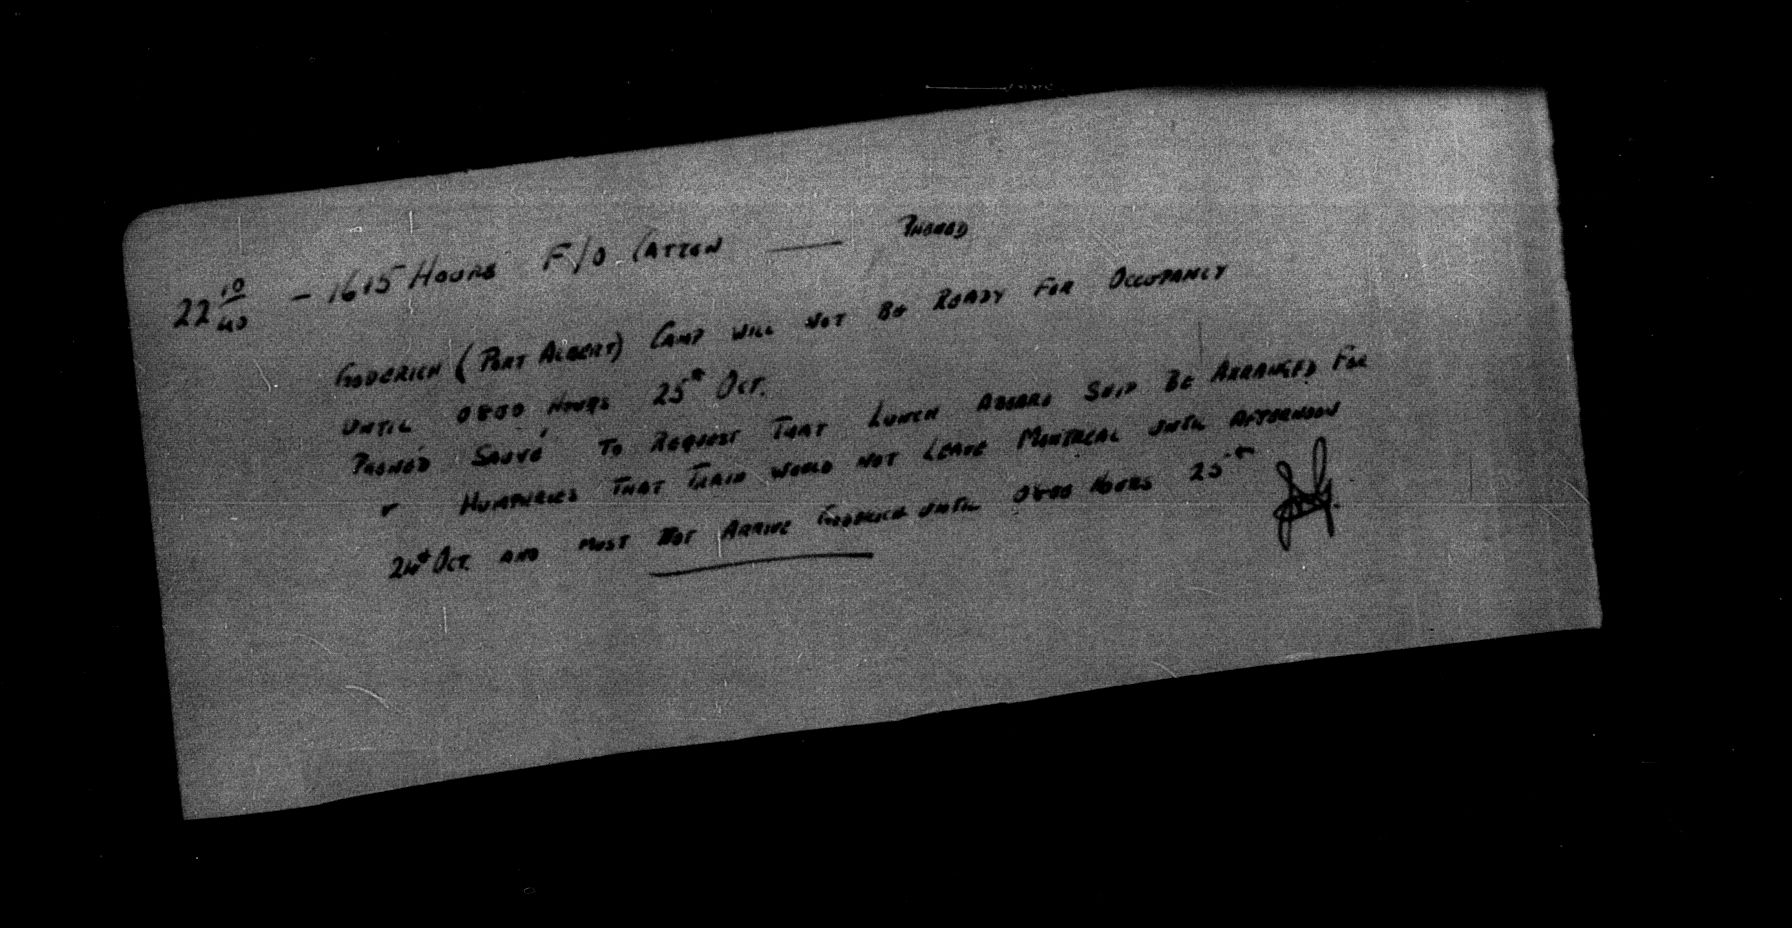 22 10/40 - 1615 HOURS F/O CATTEN — PHONED
GODERICH (PORT ALBERT) CAMP WILL NOT BE READY FOR OCCUPANCY
UNTIL 0800 HOURS 25th OCT.
PHONED SAUVÉ TO REQUEST THAT LUNCH ABOARD SHIP BE ARRANGED FOR
" HUMPHRIES THAT TRAIN WOULD NOT LEAVE MONTREAL UNTIL AFTERNOON
24th OCT. AND MUST NOT ARRIVE GODERICH UNTIL 0800 HOURS 25th